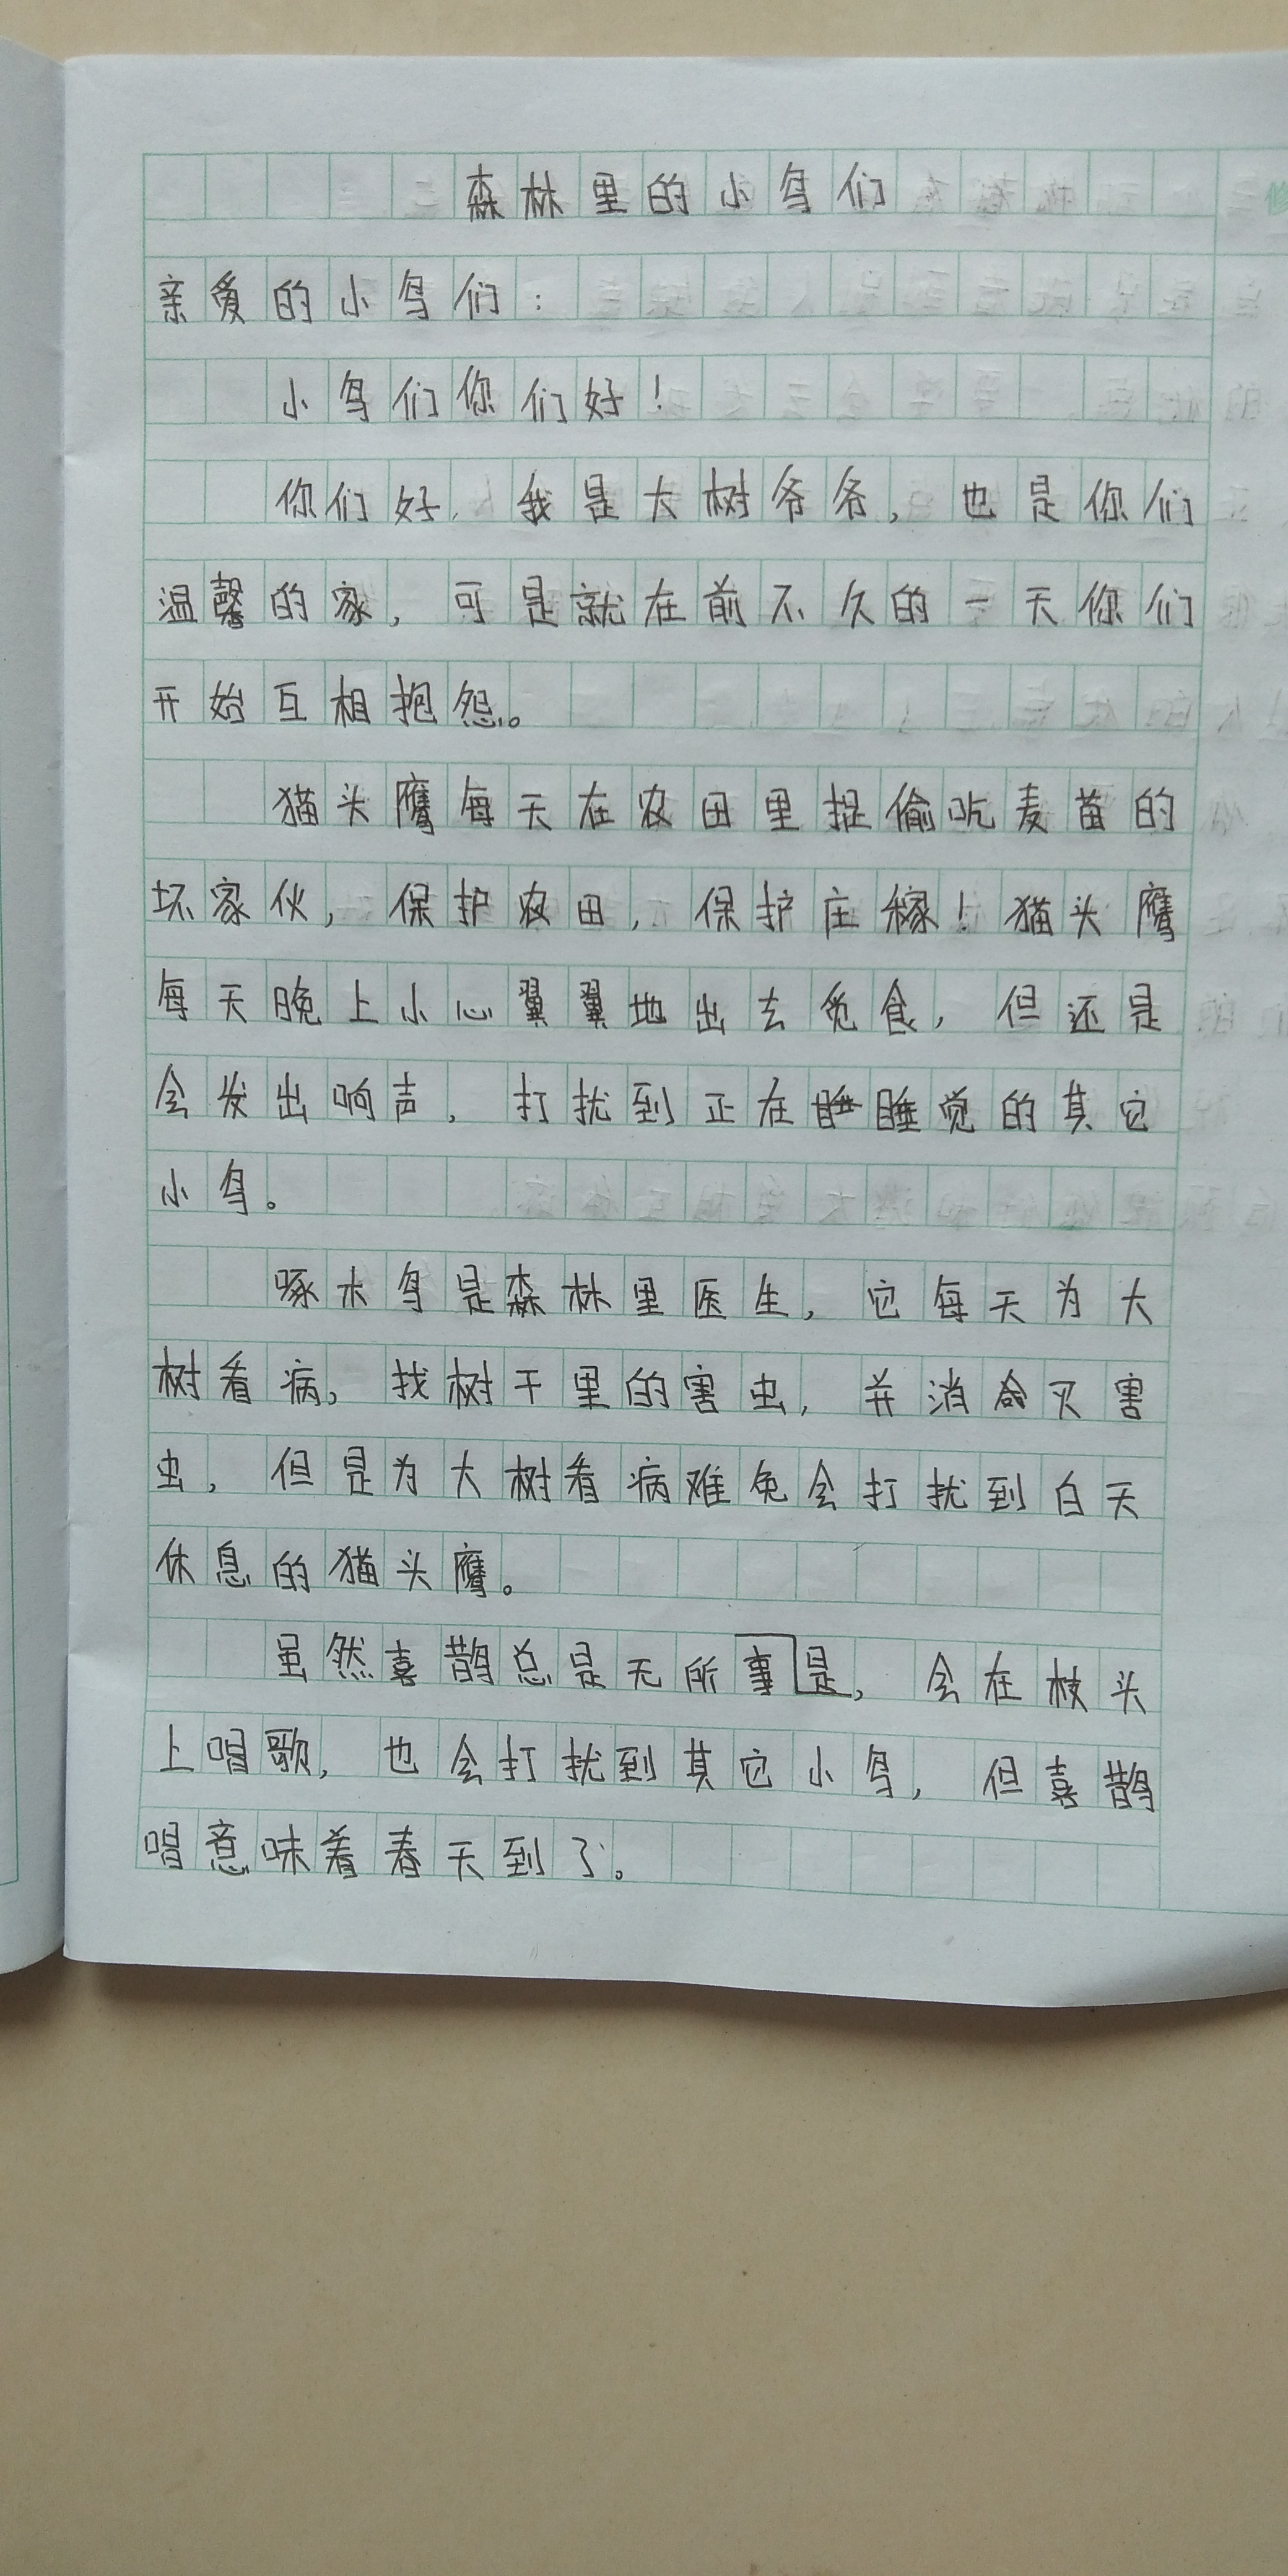 森林里的小鸟们
亲爱的小鸟们：
小鸟们你们好！
你们好，我是大树爷爷，也是你们
温馨的家，可是就在前不久的一天你们
开始互相抱怨。
猫头鹰每天在农田里捉偷吃麦苗的
坏家伙，保护农田，保护庄稼！猫头鹰
每天晚上小心翼翼地出去觅食，但还是
会发出响声，打扰到正在睡觉的其它
小鸟。
啄木鸟是森林里医生，它每天为大
树看病，找树干里的害虫，并消灭害
虫，但是为大树看病难免会打扰到白天
休息的猫头鹰。
虽然喜鹊总是无所事是，会在枝头
上唱歌，也会打扰到其它小鸟，但喜鹊
唱意味着春天到了。